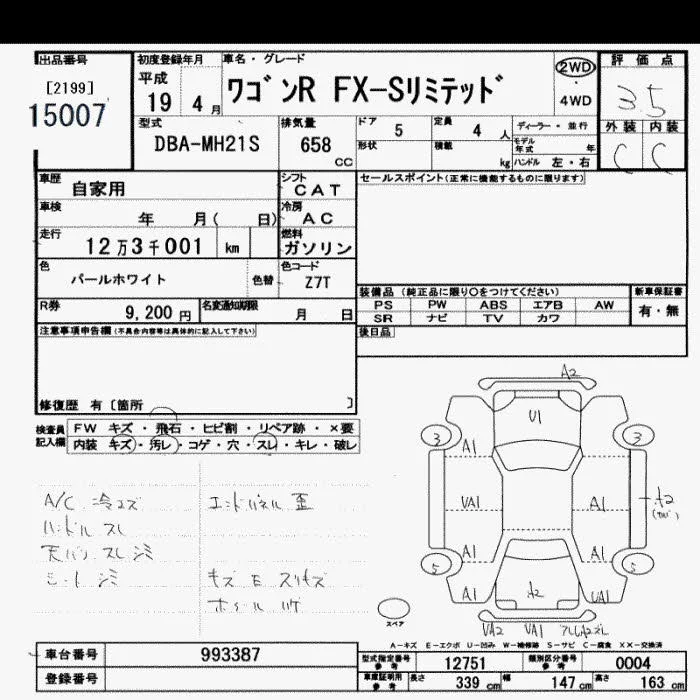 出品番号
[2199]
15007
初度登録年月
平成
19 4 月
車名・グレード
ワゴンR FX-Sリミテッド
2WD
・
4WD
評価点
3.5
外装 内装
C C
型式
DBA-MH21S
排気量
658
cc
ドア
5
定員
4 人
形状
積載
kg
ディーラー・並行
モデル年式 年
ハンドル 左・右
車歴
自家用
シフト
CAT
車検
年 月( 日)
冷房
AC
走行
12万3千001 km
燃料
ガソリン
色
パールホワイト
色替
色コード
Z7T
R券
9,200 円
名変通知期限
月 日
セールスポイント(正常に機能するものに限ります)
装備品 (純正品に限り○をつけてください)
PS PW ABS エアB AW
SR ナビ TV カワ
新車保証書
有・無
後日品
注意事項申告欄(不具合内容等は具体的に記入して下さい)
修復歴 有〔箇所 〕
検査員記入欄
FW キズ・飛石・ヒビ割・リペア跡・×要
内装 キズ・汚レ・コゲ・穴・スレ・キレ・破レ
A/C 冷エズ
ハンドル スレ
天バリ スレ シミ
シート シミ
エンドパネル 歪
キズ E スリキズ
ホイール
A2
U1
3
3
A1
VA1
A1
A2
A1
A1
5
5
A1
A2
UA1
VA2 VA1
スペア
A-キズ E-エクボ U-凹み W-補修跡 S-サビ C-腐食 XX-交換済
車台番号
993387
登録番号
型式指定番号参考
12751
類別区分番号参考
0004
車庫証明用参考
長さ 339 cm
幅 147 cm
高さ 163 cm